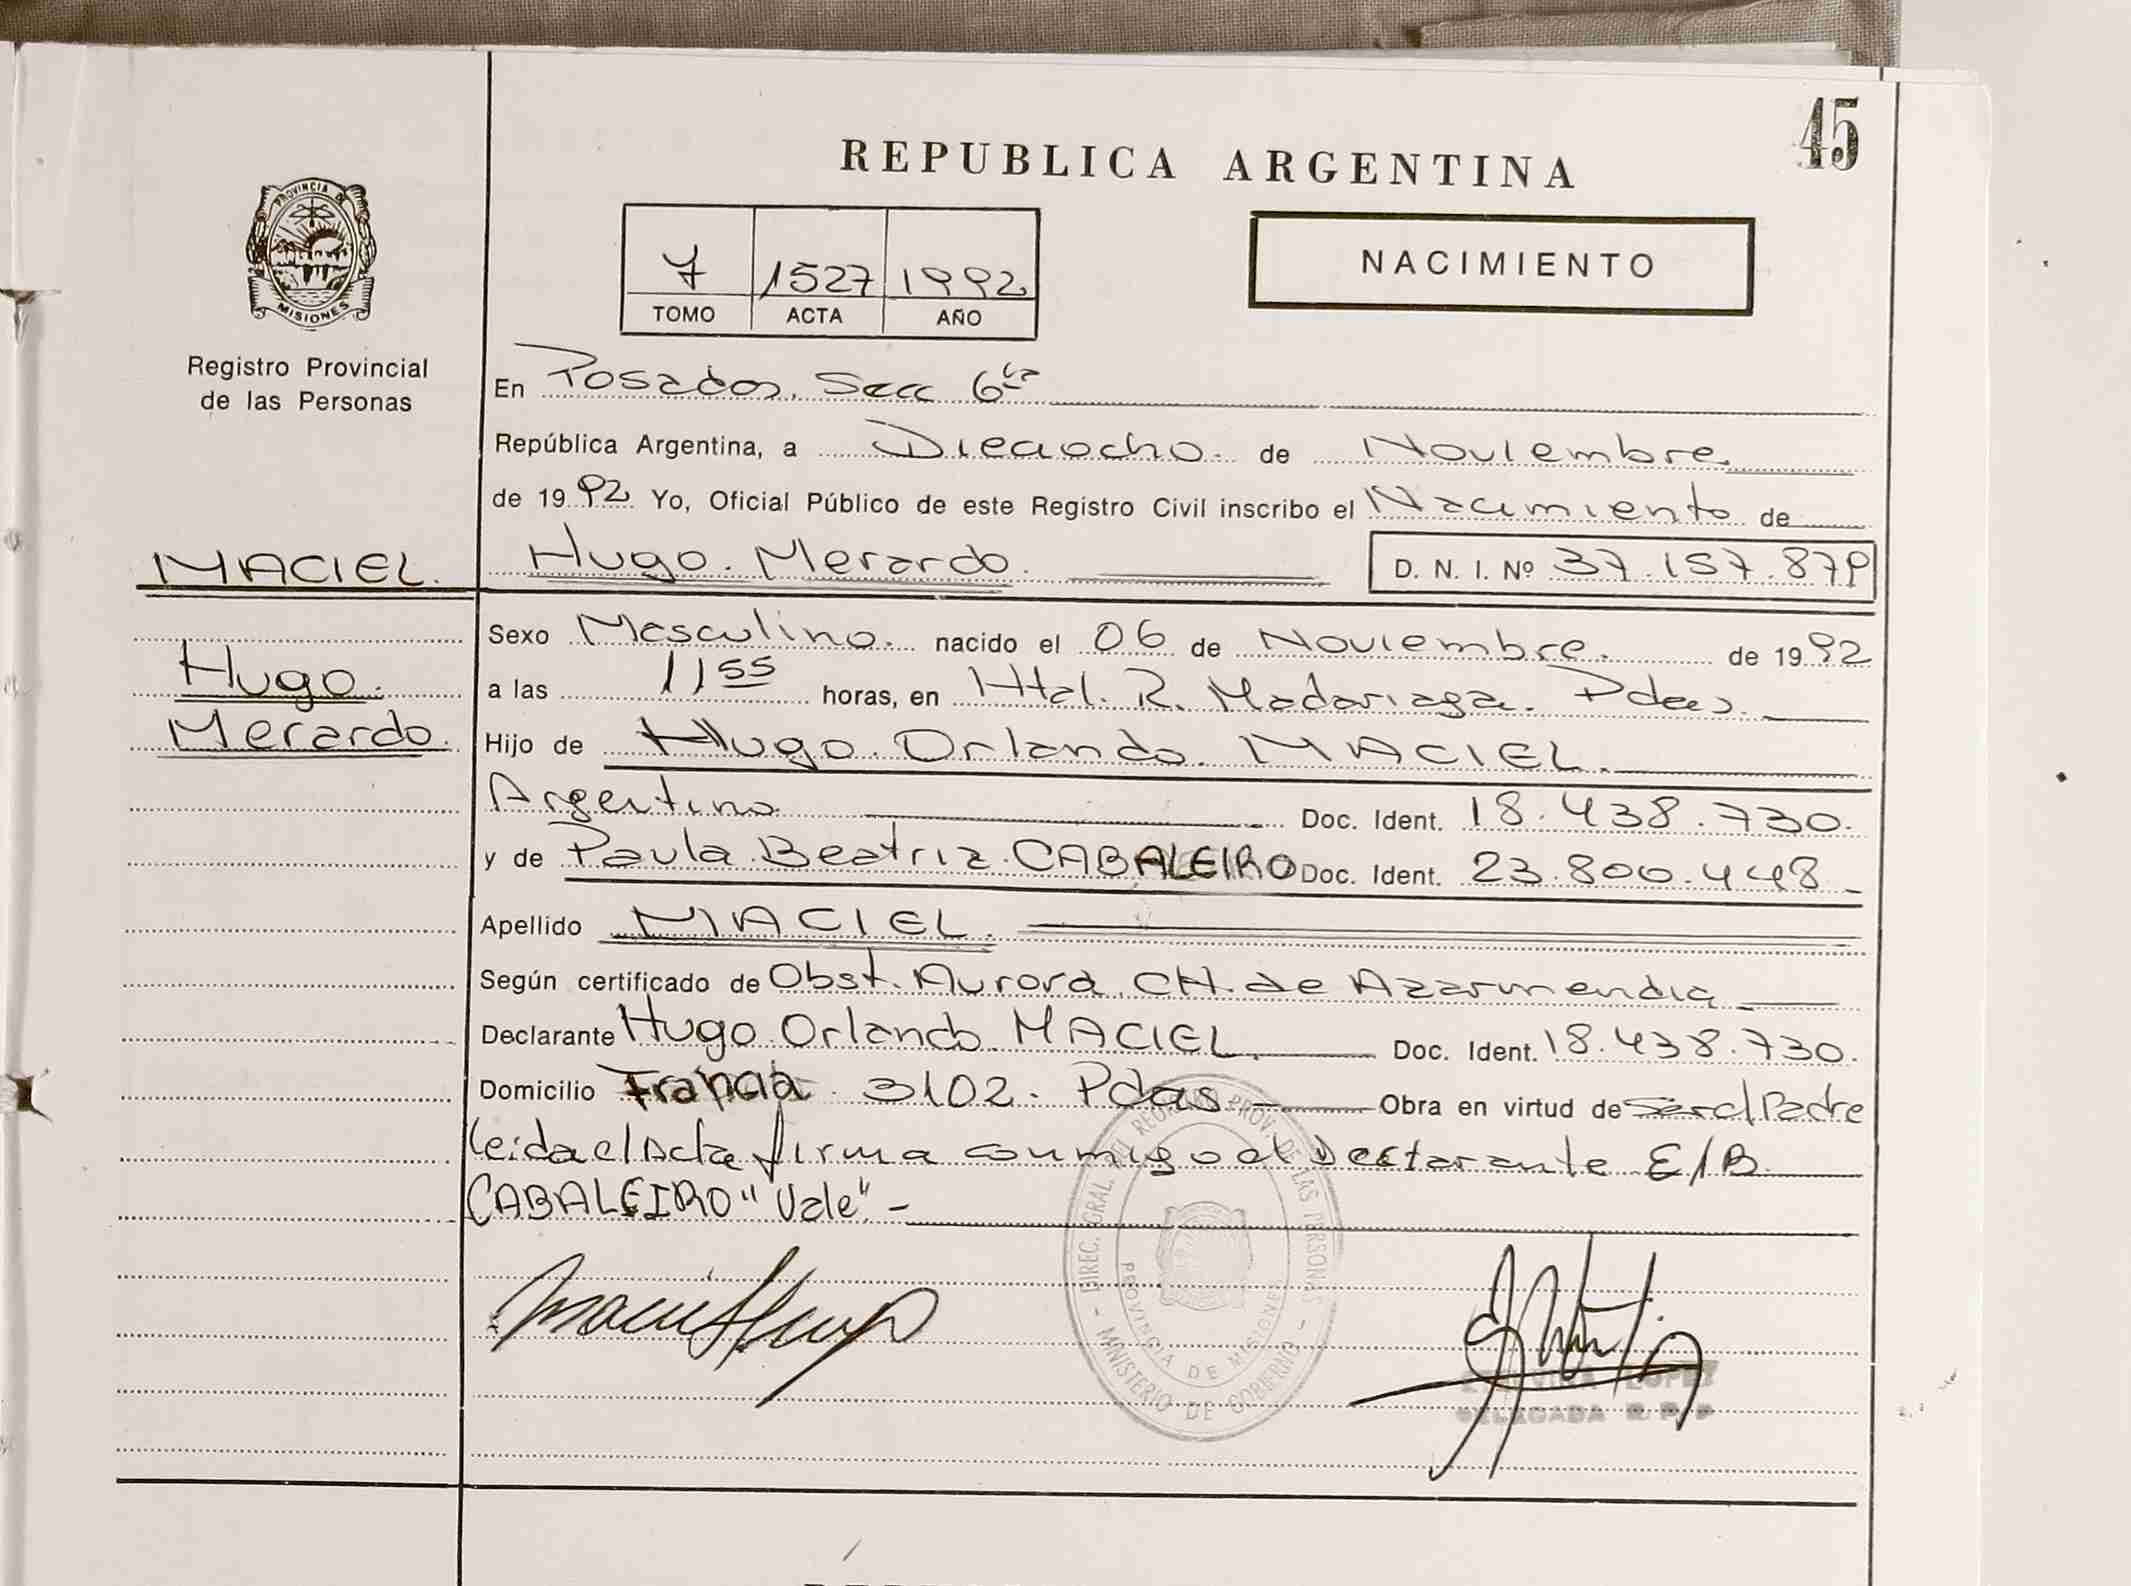 45
REPUBLICA ARGENTINA
PROVINCIA DE
MISIONES
Registro Provincial
de las Personas
7 1527 1992
TOMO ACTA AÑO
NACIMIENTO
En Posadas, Secc 6ta
República Argentina, a Dieciocho de Noviembre
de 1992 Yo, Oficial Público de este Registro Civil inscribo el Nacimiento de
MACIEL. Hugo Merardo. D. N. I. Nº 37.157.879
Sexo Masculino. nacido el 06 de Noviembre. de 1992
Hugo
a las 11 55 horas, en Htal. R. Madariaga. Pdas.
Merardo. Hijo de Hugo Orlando MACIEL.
Argentino Doc. Ident. 18.438.730.
y de Paula Beatriz CABALEIRO Doc. Ident. 23.800.448
Apellido MACIEL.
Según certificado de Obst. Aurora CH. de Azarmendia
Declarante Hugo Orlando MACIEL Doc. Ident. 18.438.730.
Domicilio Francia 3102. Pdas Obra en virtud de Ser el Padre
leida el Acta firma conmigo el Declarante E/B
CABALEIRO "Vale".-
DIREC. GRAL. DEL REGISTRO PROV. DE LAS PERSONAS
PROVINCIA DE MISIONES
- MINISTERIO DE GOBIERNO -
LOPEZ
DELEGADA R. P. P